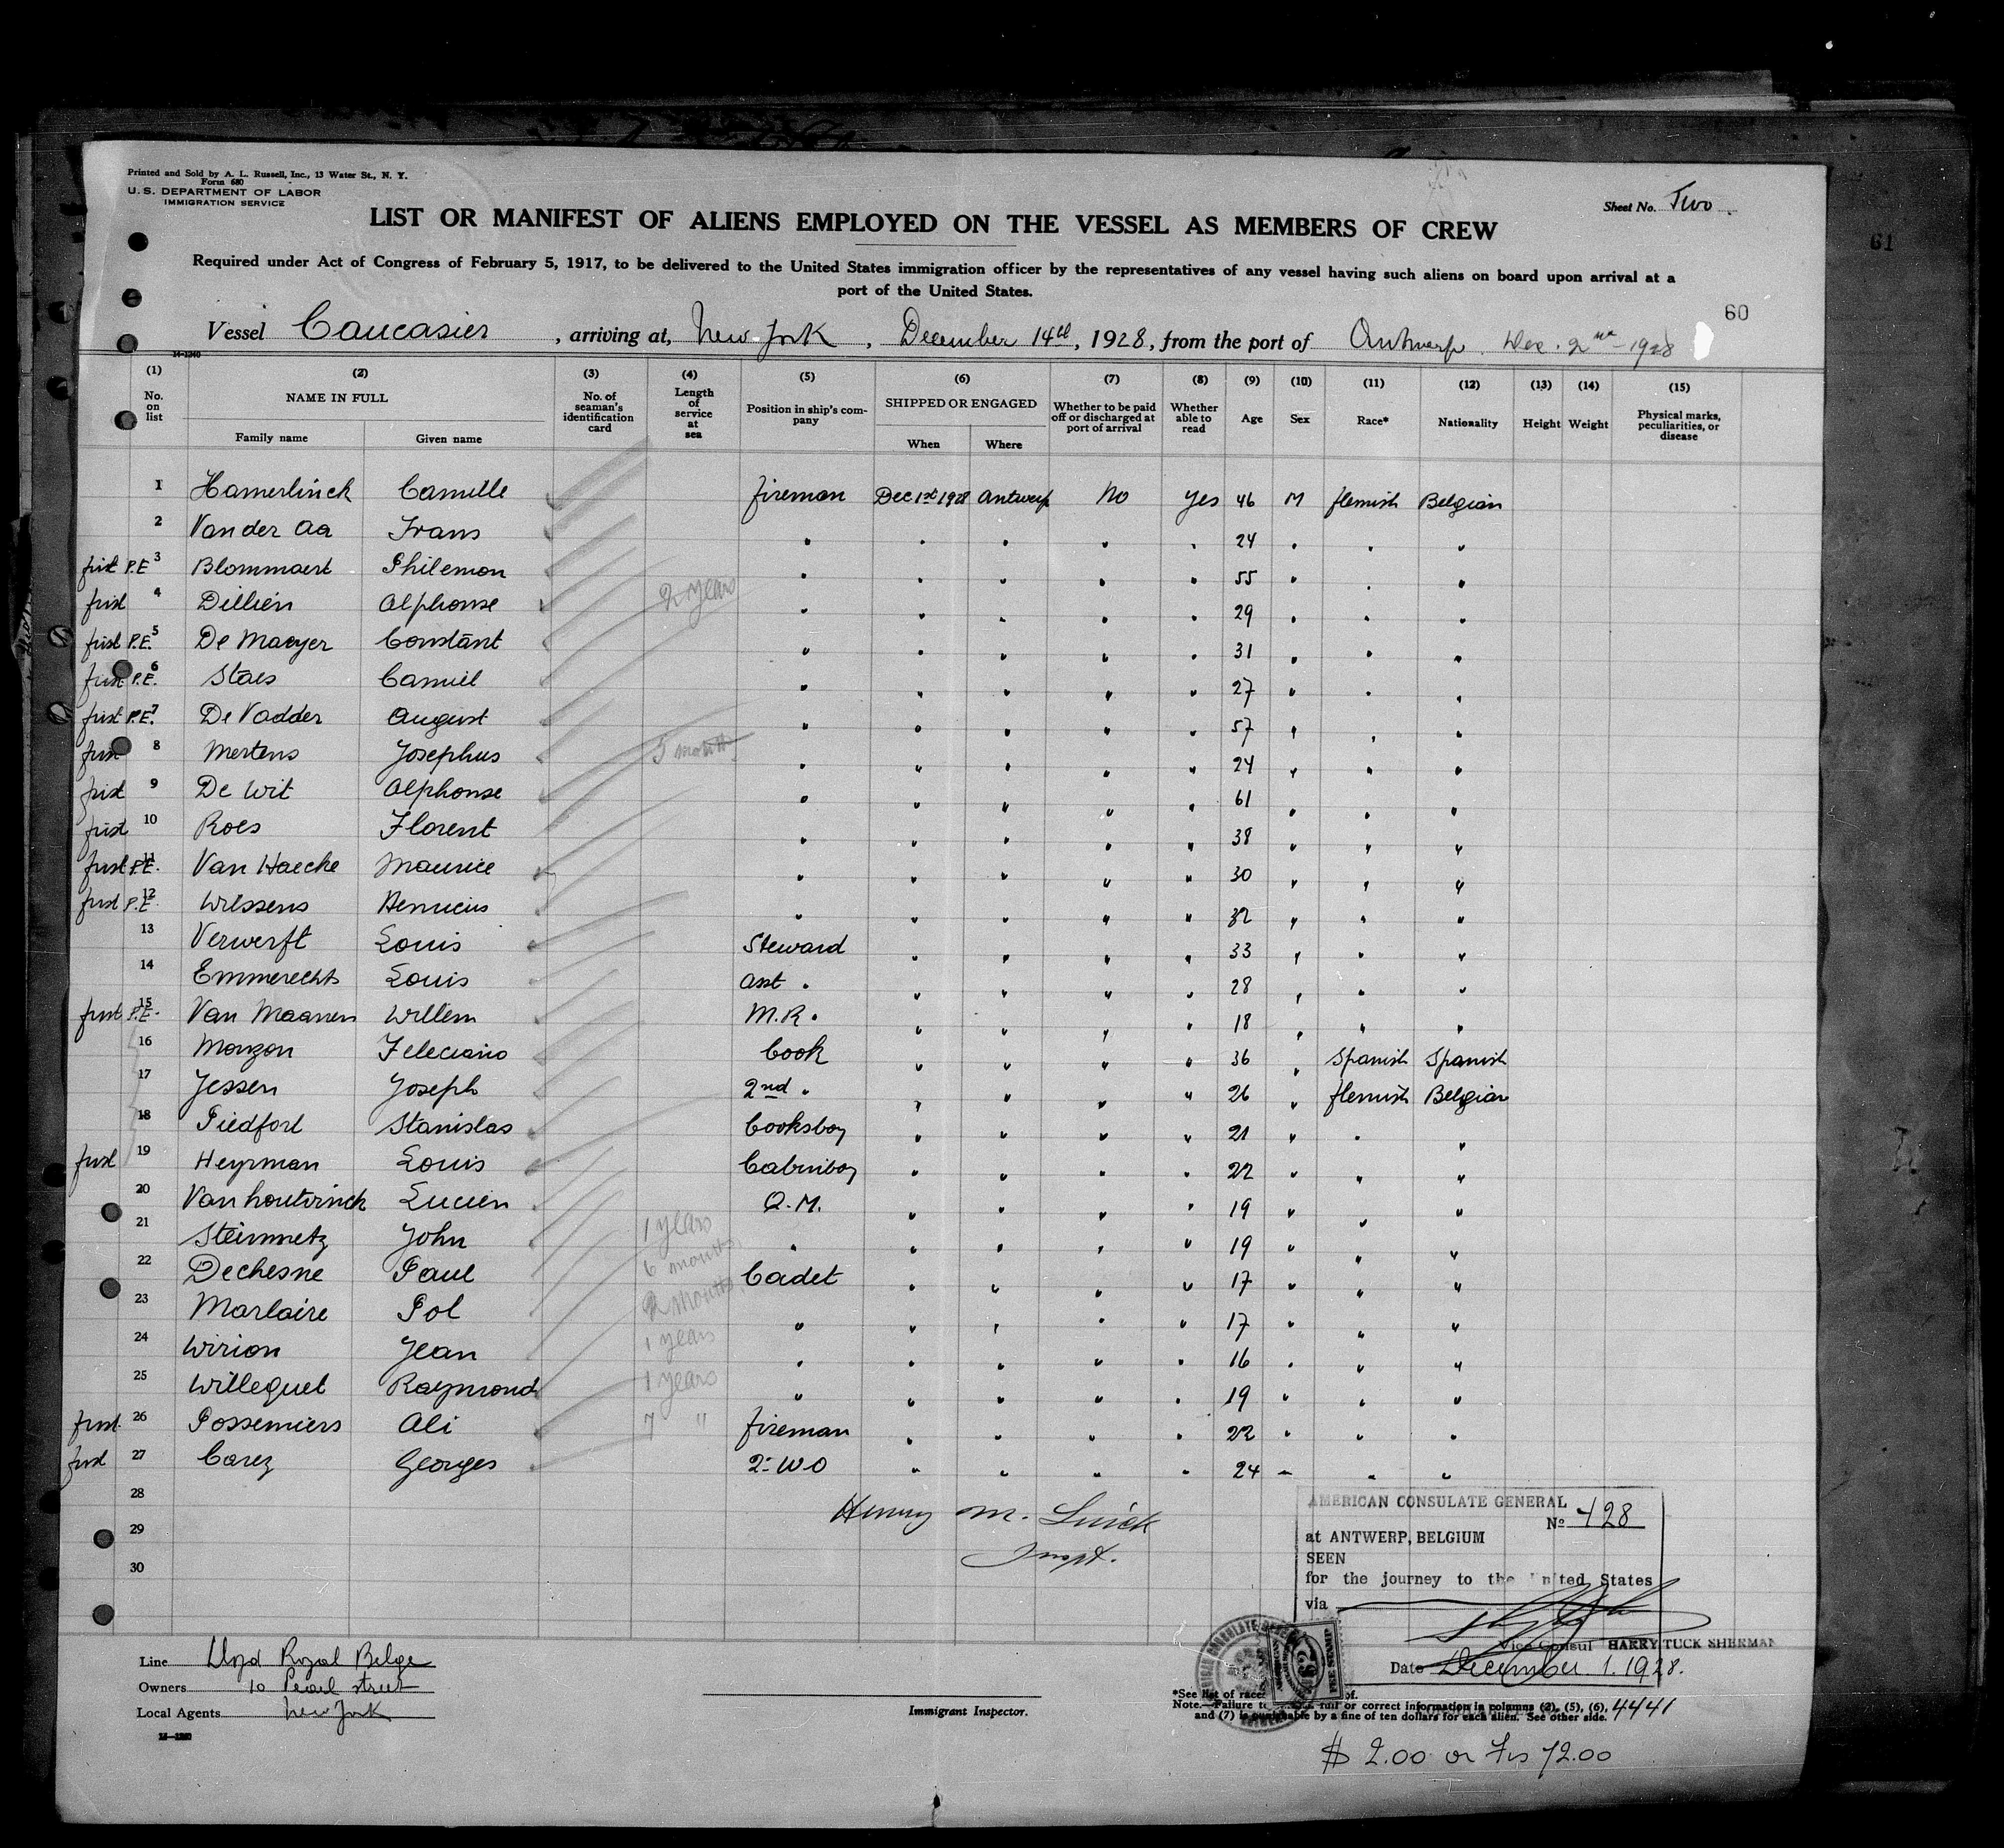 Printed and Sold by A. L. Russell, Inc., 13 Water St., N. Y.
Form 680
U. S. DEPARTMENT OF LABOR
IMMIGRATION SERVICE
Sheet No. Two
LIST OR MANIFEST OF ALIENS EMPLOYED ON THE VESSEL AS MEMBERS OF CREW
61
Required under Act of Congress of February 5, 1917, to be delivered to the United States immigration officer by the representatives of any vessel having such aliens on board upon arrival at a
port of the United States.
60
Vessel Caucasier, arriving at, New York, December 14th, 1928, from the port of Antwerp Dec. 2nd 1928
14-1240
(1) (2) (3) (4) (5) (6) (7) (8) (9) (10) (11) (12) (13) (14) (15)
No. on list NAME IN FULL No. of seaman's identification card Length of service at sea Position in ship's company SHIPPED OR ENGAGED Whether to be paid off or discharged at port of arrival Whether able to read Age Sex Race* Nationality Height Weight Physical marks, peculiarities, or disease
Family name Given name When Where
1 Hamerlinck Camille fireman Dec 1st 1928 Antwerp No yes 46 M flemish Belgian
2 Van der Aa Frans " " " " " 24 " " "
first P.E 3 Blommaert Philemon " " " " " 55 " " "
first 4 Dillien Alphonse 2 years " " " " " 29 " " "
first P.E. 5 De Maeyer Constant " " " " " 31 " " "
first P.E. 6 Staes Camiel " " " " " 27 " " "
first P.E. 7 De Vadder August " " " " " 57 " " "
first 8 Mertens Josephus 5 months " " " " " 24 " " "
first 9 De Wit Alphonse " " " " " 61 " " "
first 10 Roes Florent " " " " " 38 " " "
first P.E. 11 Van Haecke Maurice " " " " " 30 " " "
first P.E. 12 Wilssens Henricus " " " " " 32 " " "
13 Verwerft Louis Steward " " " " 33 " " "
14 Emmerechts Louis asst " " " " " 28 " " "
first P.E. 15 Van Maanen Willem M.R. " " " " 18 " " "
16 Monzon Feleciano Cook " " " " 36 " Spanish Spanish
17 Jessen Joseph 2nd " " " " " 26 " flemish Belgian
18 Piedfort Stanislas Cooksboy " " " " 21 " " "
first 19 Heyrman Louis Cabinboy " " " " 22 " " "
20 Vanhoutvinck Lucien Q.M. " " " " 19 " " "
21 Steinmetz John 1 years " " " " " 19 " " "
22 Dechesne Paul 6 months Cadet " " " " 17 " " "
23 Marlaire Pol 2 months " " " " " 17 " " "
24 Wirion Jean 1 years " " " " " 16 " " "
25 Willequet Raymond 1 years " " " " " 19 " " "
first 26 Possemiers Ali 7 " fireman " " " " 22 " " "
first 27 Carez Georges 2° W O " " " " 24 " " "
28
29
30
Henry M.
Inspt.
AMERICAN CONSULATE GENERAL
No 428
at ANTWERP, BELGIUM
SEEN
for the journey to the United States
via
Vice Consul HARRY TUCK SHERMAN
Date December 1. 1928.
Line Lloyd Royal Belge
Owners 10 Pearl street
Local Agents New York
14-1240
Immigrant Inspector.
*See list of races
Note.—Failure to full or correct information in columns (2), (5), (6),
and (7) is punishable by a fine of ten dollars for each alien. See other side.
4441
$ 2.00 or Frs 72.00